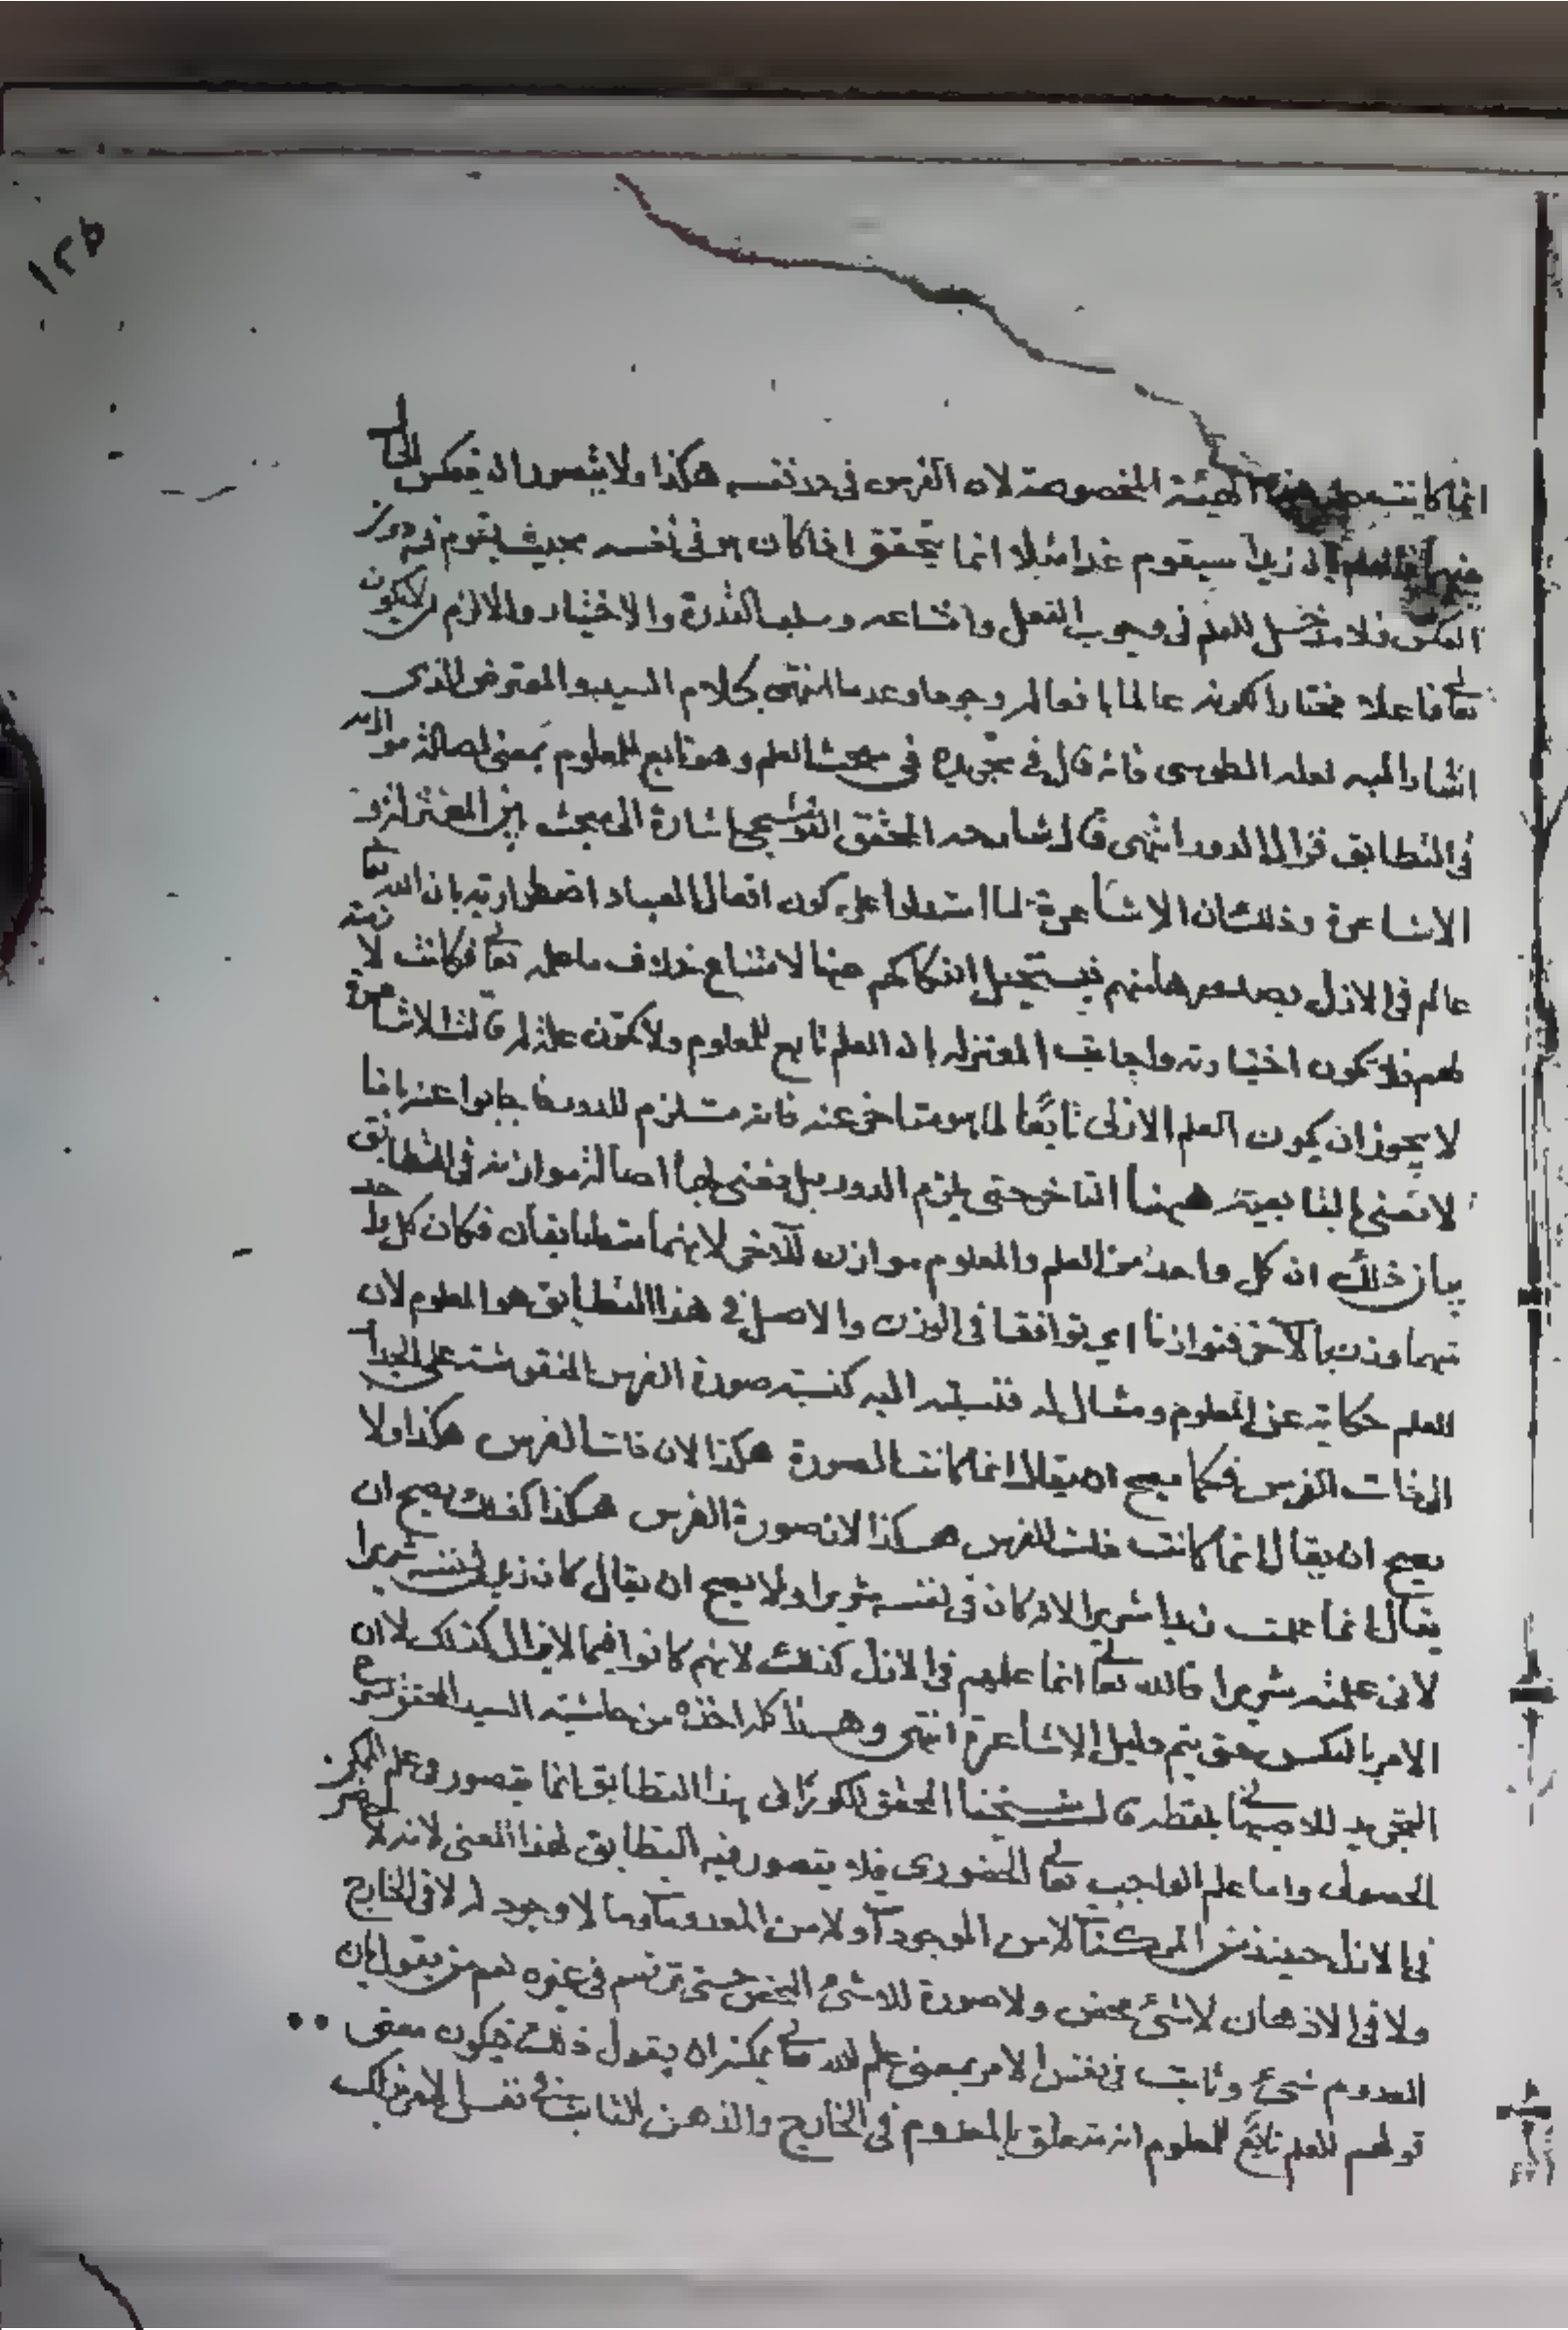 ١٢٥
انما كانت على هذه الهيئة المخصوصة لان الفرس فى حد نفسه هكذا ولا يتصور ان ينعكس الحال
فالعلم بان زيدا سيقوم غدا مثلا انما يتحقق اذا كان هو فى نفسه بحيث يقوم فيه دون
العكس فلا مدخل للعلم فى وجوب الفعل وامتناعه وسلب القدرة والاختيار والا لزم ان لا يكون
تعالى فاعلا مختارا لكونه عالما بافعاله وجودا وعدما انتهى كلام السيد والمعترض الذى
اشار اليه لعله الطوسى فانه قال فى تجريده فى مبحث العلم وهو تابع للمعلوم بمعنى اصالة موازنه
فى التطابق فزال الدور انتهى قال شارحه المحقق القوشجى اشارة الى مبحث بين المعتزلة و
الاشاعرة وذلك ان الاشاعرة لما استدلوا على كون افعال العباد اضطرارية بان الله تعالى
عالم فى الازل بصدورها منهم فيستحيل انفكاكهم عنها لامتناع خلاف ما علمه تعالى فكانت لازمة
لهم فلا تكون اختيارية واجابت المعتزلة بان العلم تابع للمعلوم ولا يكون علة له قالت الاشاعرة
لا يجوز ان يكون العلم الازلى تابعًا لما هو متاخر عنه فانه مستلزم للدور فاجابوا عنه بانا
لا نعنى بالتابعية ههنا التاخر حتى يلزم الدور بل نعنى بها اصالة موازنه فى التطابق
بيان ذلك ان كل واحد من العلم والمعلوم موازن للآخر لانهما متطابقان فكان كل واحد
منهما وزن بالآخر فتوازنا اى توافقا فى الوزن والاصل فى هذا التطابق هو المعلوم لان
العلم حكاية عن المعلوم ومثال له فنسبته اليه كنسبة صورة الفرس المنقوشة على الجدار
الى ذات الفرس فكما يصح ان يقال انما كانت الصورة هكذا لان ذات الفرس هكذا ولا
يصح ان يقال انما كانت ذات الفرس هكذا لان صورة الفرس هكذا كذلك يصح ان
يقال انما علمت زيدا شريرا لانه كان فى نفسه شريرا ولا يصح ان يقال كان زيد فى نفسه شريرا
لانى علمته شريرا فالله تعالى انما علمهم فى الازل كذلك لانهم كانوا فيما لا يزال كذلك لا ان
الامر بالعكس حتى يتم دليل الاشاعرة انتهى وهذا كله اخذه من حاشية السيد المحقق
التجريد للاصبهانى بلفظه قال شيخنا المحقق الكورانى هذا التطابق انما يتصور فى علم الممكن
الحصولى واما علم الواجب تعالى الحضورى فلا يتصور فيه التطابق لهذا المعنى لانه لا
فى الازل حينئذ من الممكنات لا من الموجودات ولا من المعدومات وما لا وجود له لا فى الخارج
ولا فى الاذهان لا شئ محض ولا صورة للاشئ المحض حتى ترتسم فى غيره نعم من يقول بان
المعدوم شئ وثابت فى نفس الامر بمعنى علم الله تعالى يمكنه ان يقول ذلك فيكون معنى
قولهم العلم تابع للمعلوم انه متعلق بالمعدوم فى الخارج والذهن الثابت فى نفس الامر